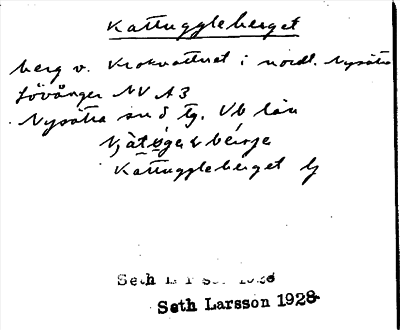 Kattuggleberget
berg v. Krokvattnet i nordl. Nysätra
Lövånger NV A3
Nysätra sn o tg. Vb län
Kattuggleberget
Seth L
Seth Larsson 1928